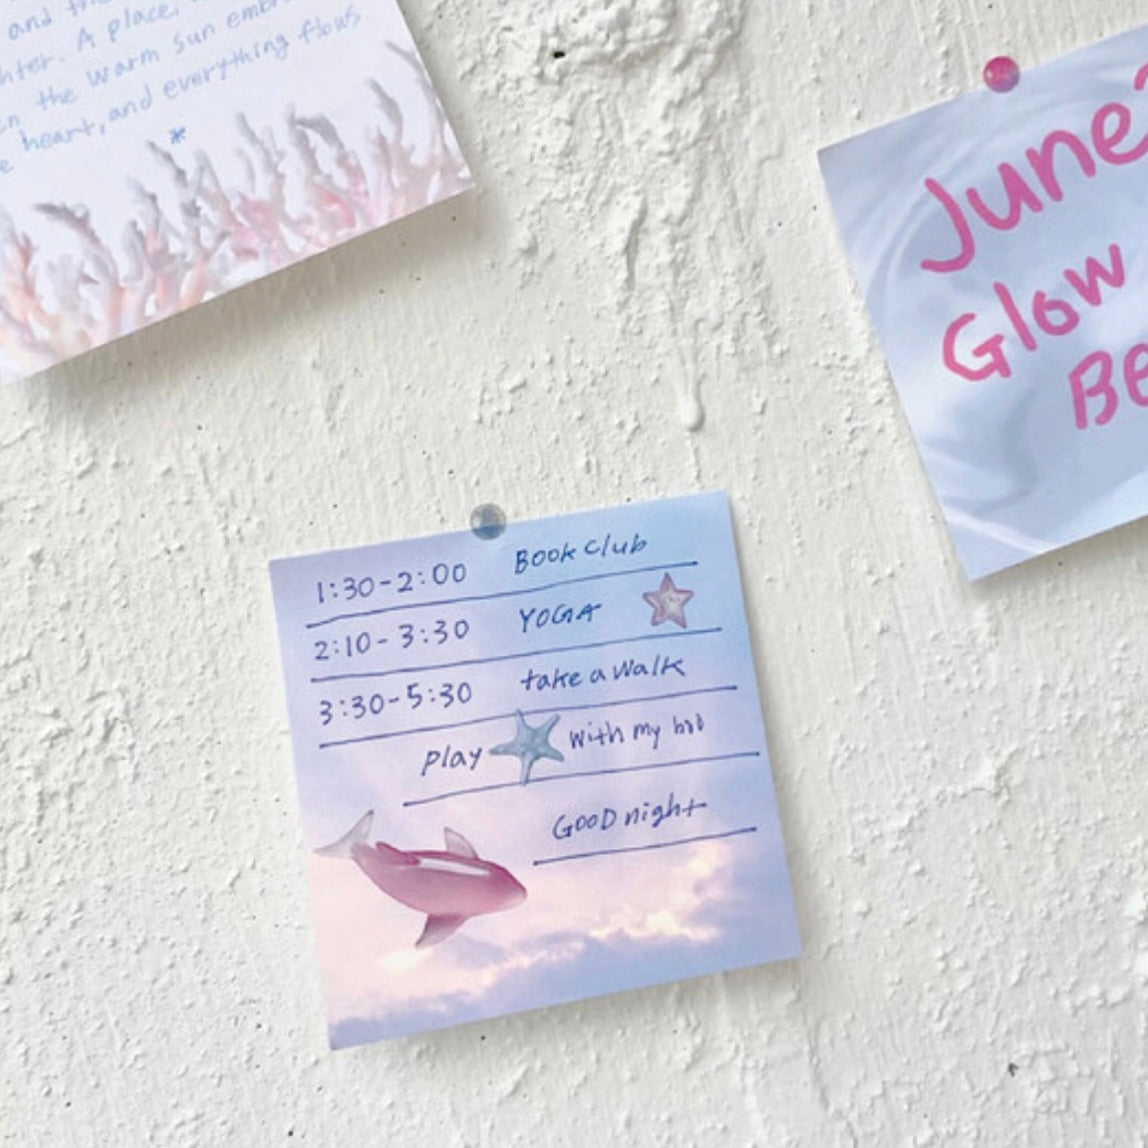 and the
hter. A place,
the warm sun
heart, and everything flows
*
June
Glow
BE
1:30-2:00 BOOK Club
2:10-3:30 YOGA
3:30-5:30 take a walk
Play with my
GOOD night